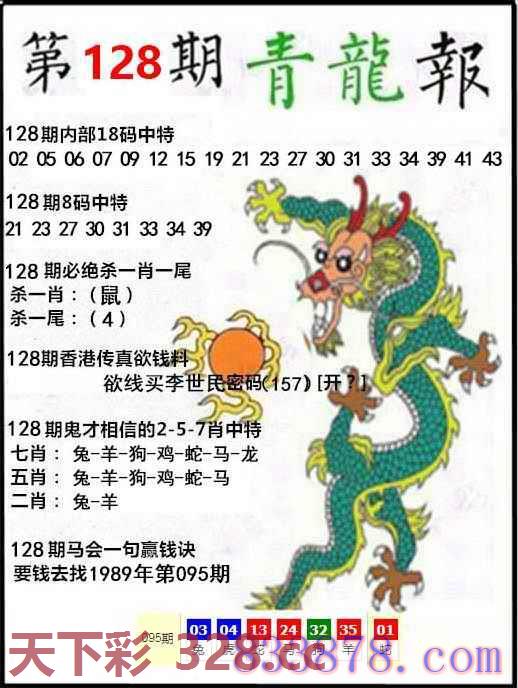 第128期青龍報
128期内部18码中特
02 05 06 07 09 12 15 19 21 23 27 30 31 33 34 39 41 43
128期8码中特
21 23 27 30 31 33 34 39
128期必绝杀一肖一尾
杀一肖：（鼠）
杀一尾：（4）
128期香港传真欲钱料
欲线买李世民密码(157)[开？]
128期鬼才相信的2-5-7肖中特
七肖：兔-羊-狗-鸡-蛇-马-龙
五肖：兔-羊-狗-鸡-蛇-马
二肖：兔-羊
128期马会一句赢钱诀
要钱去找1989年第095期
095期 03 04 13 24 32 35 01
兔 虎 龙 马 狗 羊 蛇
天下彩 328.cc